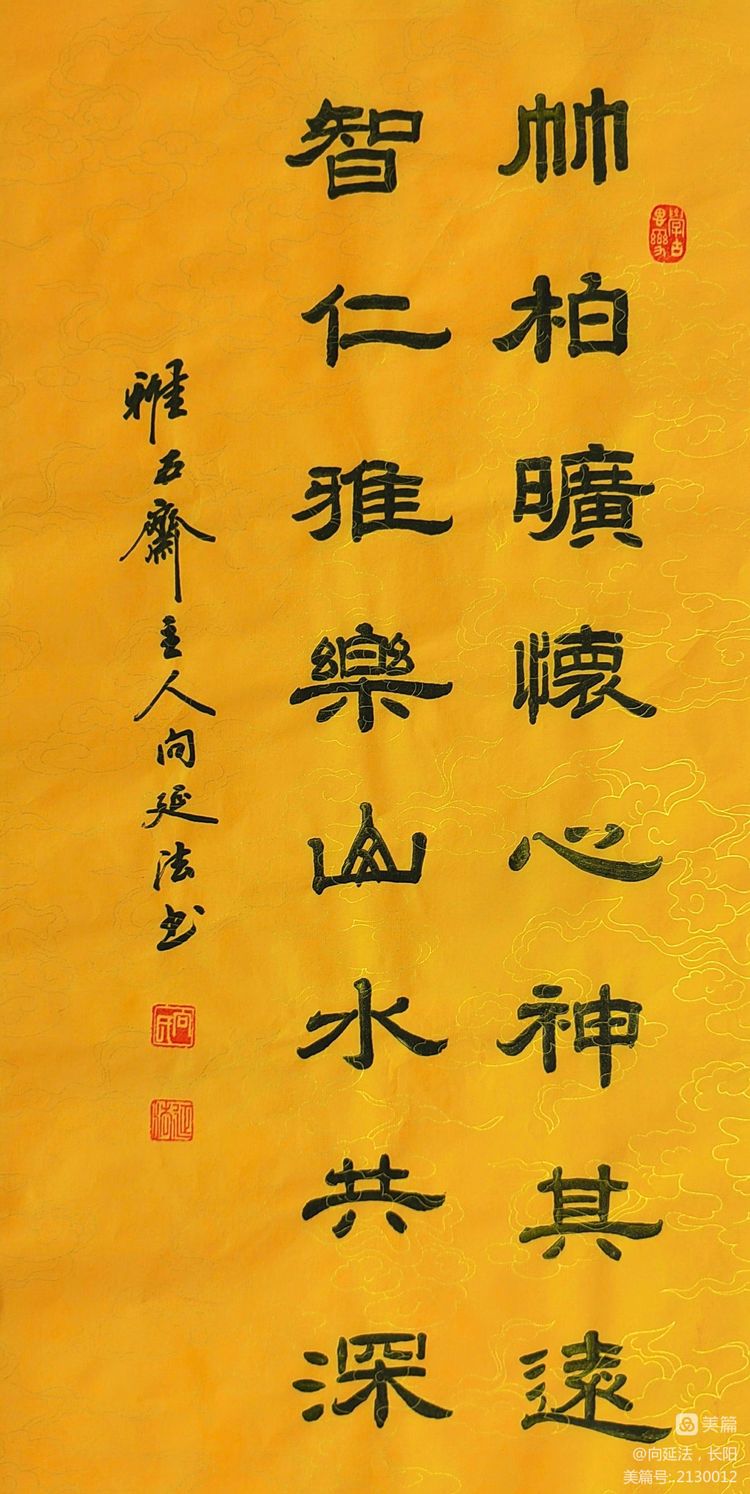 竹柏曠懷心神其遠
智仁雅樂山水共深
雅五齋主人向延法书
學古思變
向氏
延法
美篇
@向延法，长阳
美篇号: 2130012